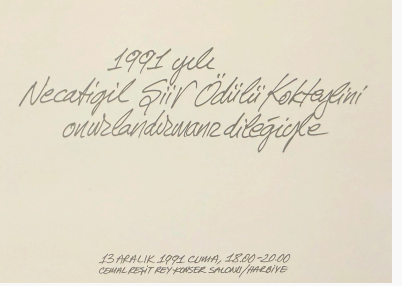 1991 yılı
Necatigil Şiir Ödülü Kokteylini
onurlandırmanız dileğiyle
13 ARALIK 1991 CUMA, 18.00-20.00
CEMAL REŞİT REY KONSER SALONU/HARBİYE